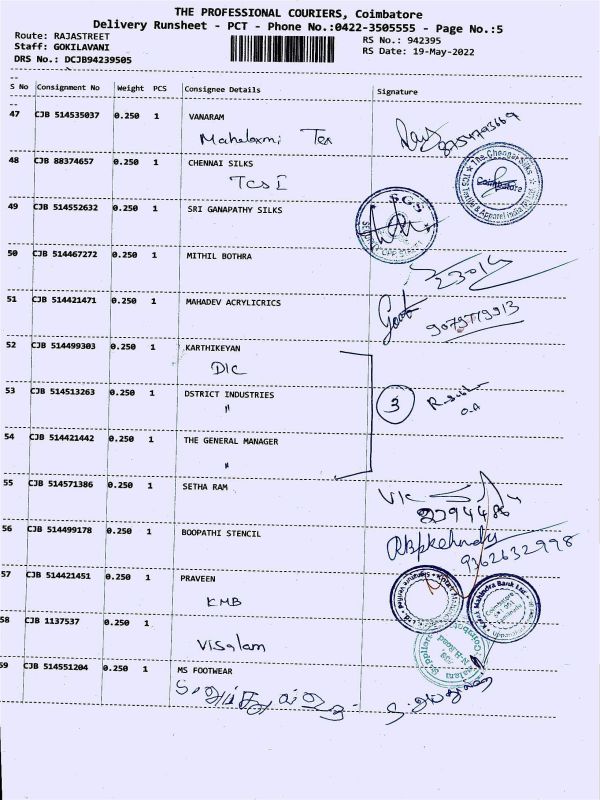 THE PROFESSIONAL COURIERS, Coimbatore
Delivery Runsheet - PCT - Phone No.:0422-3505555 - Page No.:5
Route: RAJASTREET
RS No.: 942395
Staff: GOKILAVANI
RS Date: 19-May-2022
DRS No.: DCJB94239505
S No Consignment No Weight PCS Consignee Details Signature
47 CJB 514535037 0.250 1 VANARAM
Mahalaxmi Tex
48 CJB 88374657 0.250 1 CHENNAI SILKS
TCS I
The Chennai Silks
Coimbatore
49 CJB 514552632 0.250 1 SRI GANAPATHY SILKS
S.G.S
50 CJB 514467272 0.250 1 MITHIL BOTHRA
51 CJB 514421471 0.250 1 MAHADEV ACRYLICRICS
52 CJB 514499303 0.250 1 KARTHIKEYAN
DIC
53 CJB 514513263 0.250 1 DSTRICT INDUSTRIES
"
3
54 CJB 514421442 0.250 1 THE GENERAL MANAGER
"
55 CJB 514571386 0.250 1 SETHA RAM
56 CJB 514499178 0.250 1 BOOPATHI STENCIL
9362632998
57 CJB 514421451 0.250 1 PRAVEEN
KMB
Kotak Mahindra Bank Ltd.
58 CJB 1137537 0.250 1
Visalam
59 CJB 514551204 0.250 1 MS FOOTWEAR